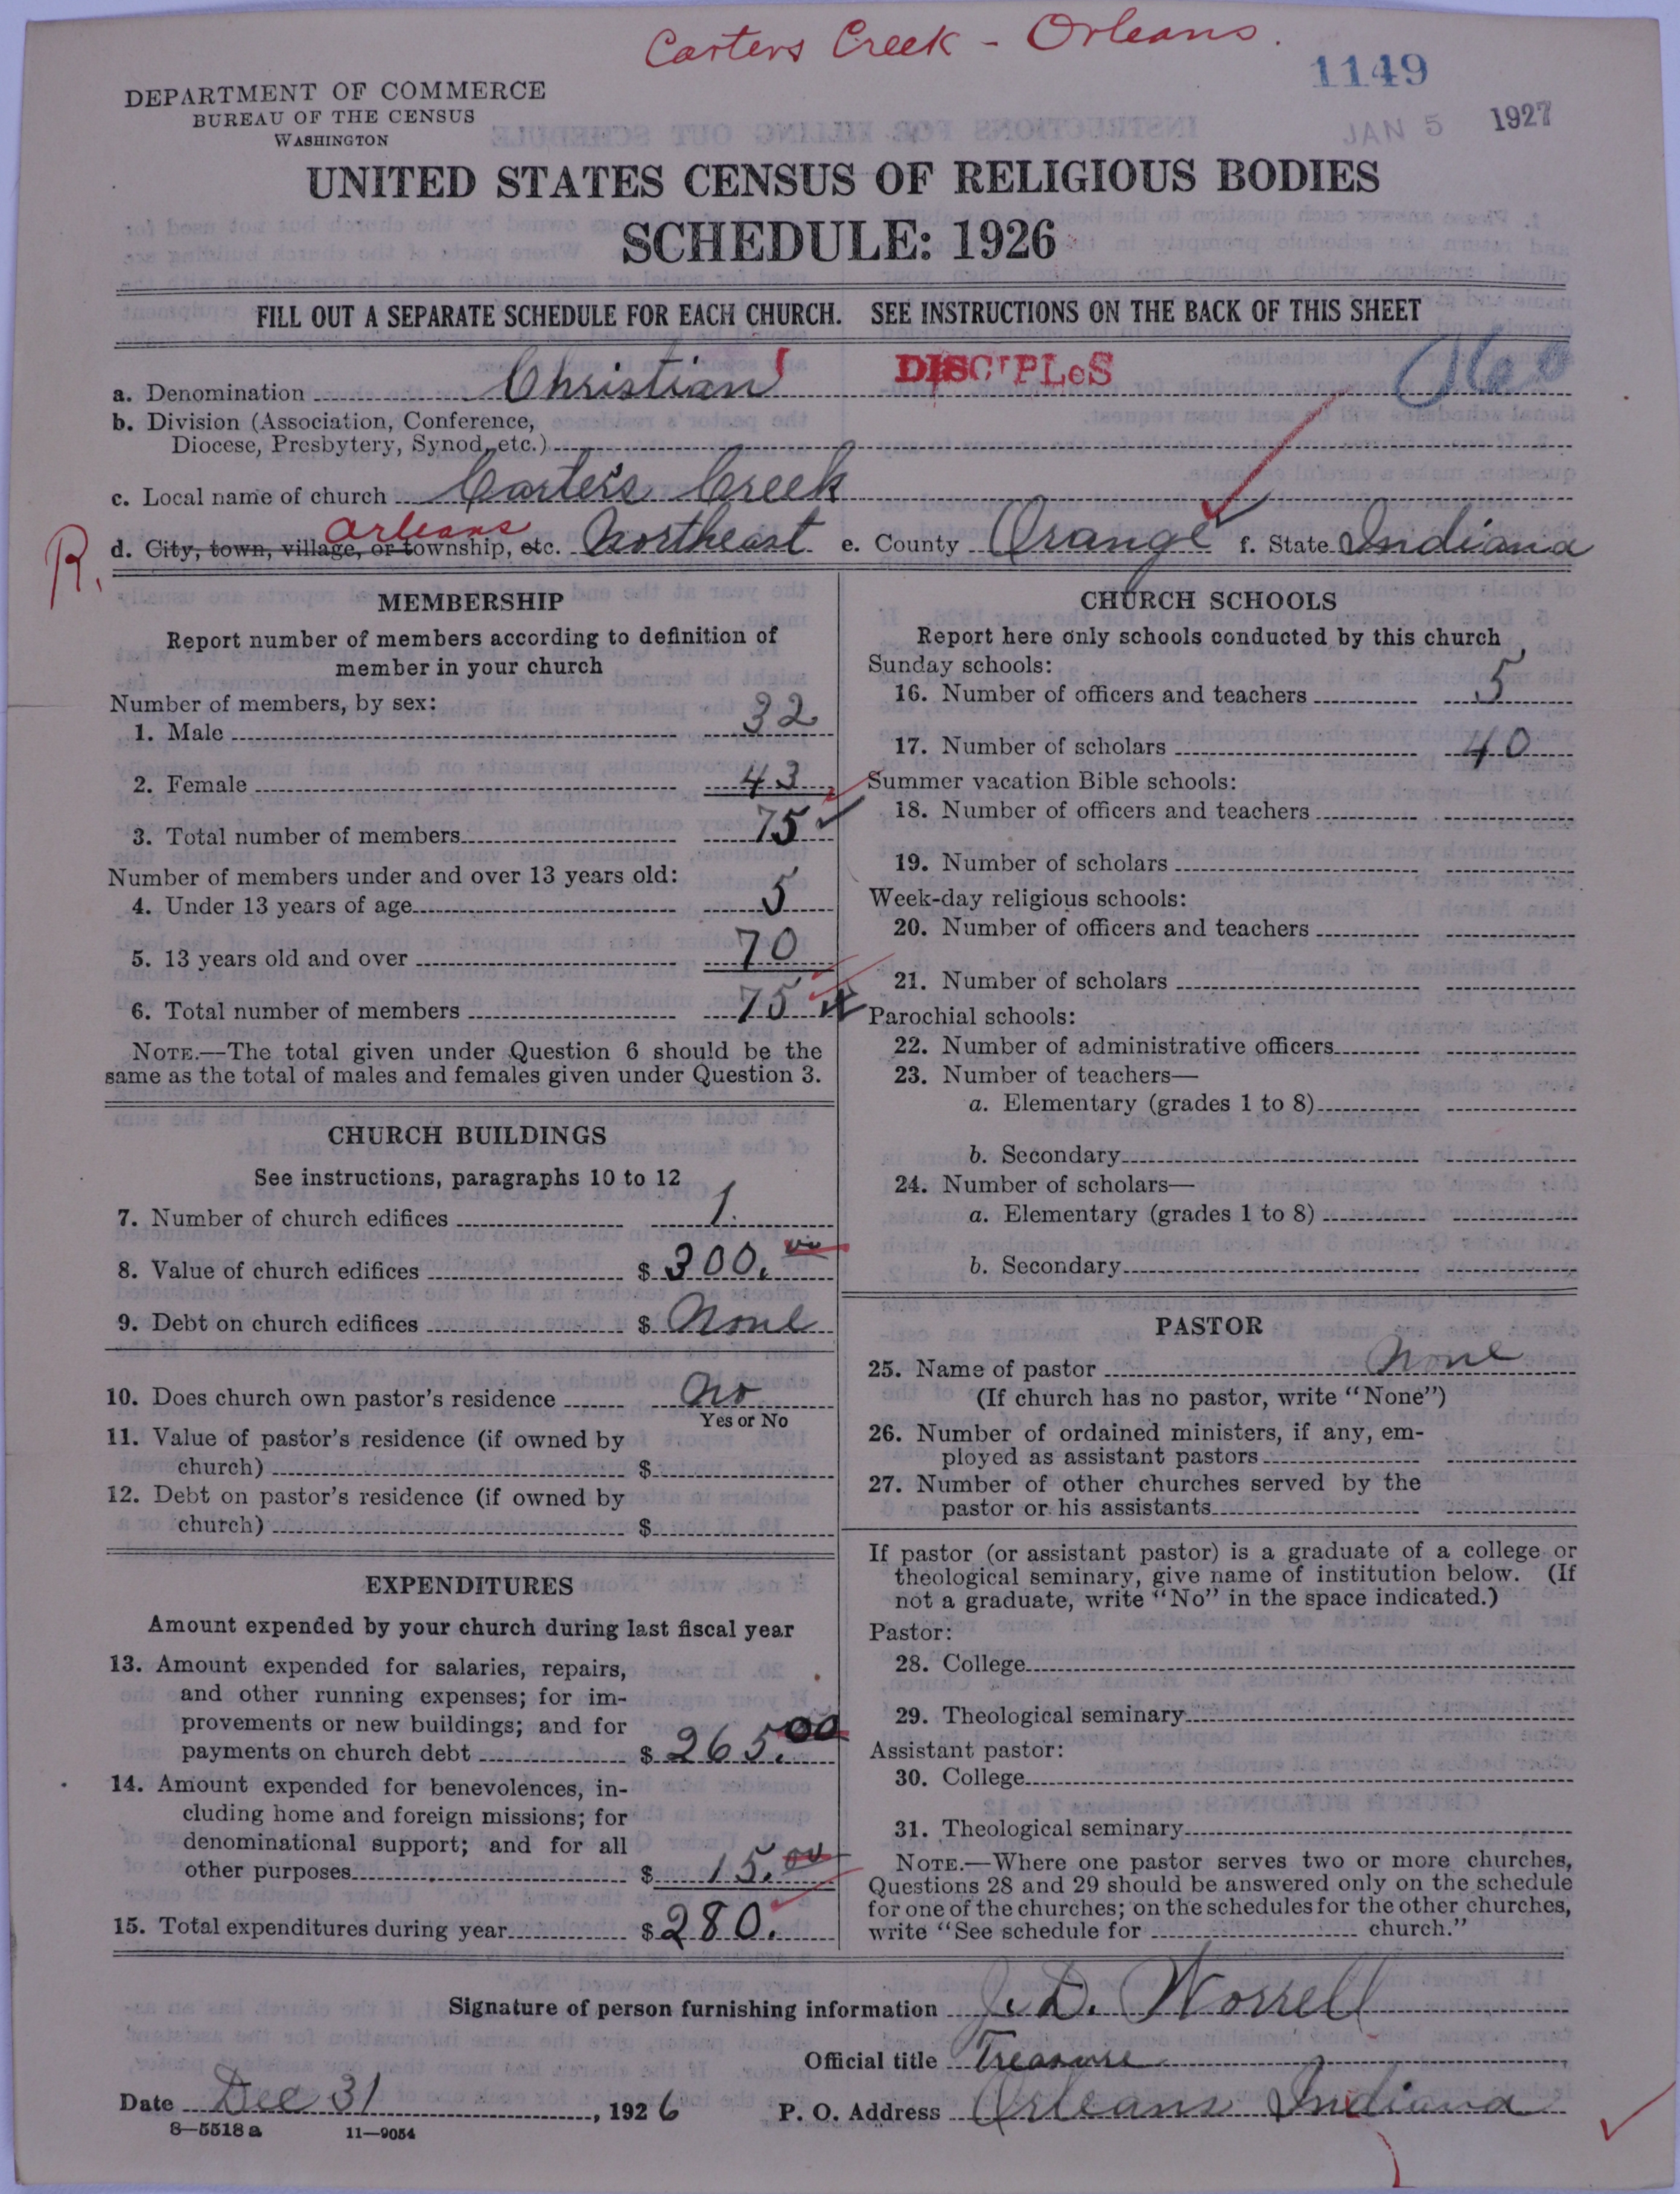 Carters Creek - Orleans.
1149
DEPARTMENT OF COMMERCE
BUREAU OF THE CENSUS
WASHINGTON
JAN 5 1927
UNITED STATES CENSUS OF RELIGIOUS BODIES
SCHEDULE: 1926
FILL OUT A SEPARATE SCHEDULE FOR EACH CHURCH. SEE INSTRUCTIONS ON THE BACK OF THIS SHEET
a. Denomination Christian DISCIPLeS
b. Division (Association, Conference,
Diocese, Presbytery, Synod, etc.)
c. Local name of church Carter's Creek
Orleans
R. d. City, town, village, or township, etc. Northeast e. County Orange f. State Indiana
MEMBERSHIP
Report number of members according to definition of
member in your church
Number of members, by sex:
1. Male 32
2. Female 43
3. Total number of members 75
Number of members under and over 13 years old:
4. Under 13 years of age 5
5. 13 years old and over 70
6. Total number of members 75
NOTE.—The total given under Question 6 should be the
same as the total of males and females given under Question 3.
CHURCH BUILDINGS
See instructions, paragraphs 10 to 12
7. Number of church edifices 1.
8. Value of church edifices $ 300. 00
9. Debt on church edifices $ None
10. Does church own pastor's residence No
Yes or No
11. Value of pastor's residence (if owned by
church) $
12. Debt on pastor's residence (if owned by
church) $
EXPENDITURES
Amount expended by your church during last fiscal year
13. Amount expended for salaries, repairs,
and other running expenses; for im-
provements or new buildings; and for
payments on church debt $ 265.00
14. Amount expended for benevolences, in-
cluding home and foreign missions; for
denominational support; and for all
other purposes $ 15.00
15. Total expenditures during year $ 280.
CHURCH SCHOOLS
Report here only schools conducted by this church
Sunday schools:
16. Number of officers and teachers 5
17. Number of scholars 40
Summer vacation Bible schools:
18. Number of officers and teachers
19. Number of scholars
Week-day religious schools:
20. Number of officers and teachers
21. Number of scholars
Parochial schools:
22. Number of administrative officers
23. Number of teachers—
a. Elementary (grades 1 to 8)
b. Secondary
24. Number of scholars—
a. Elementary (grades 1 to 8)
b. Secondary
PASTOR
25. Name of pastor None
(If church has no pastor, write "None")
26. Number of ordained ministers, if any, em-
ployed as assistant pastors
27. Number of other churches served by the
pastor or his assistants
If pastor (or assistant pastor) is a graduate of a college or
theological seminary, give name of institution below. (If
not a graduate, write "No" in the space indicated.)
Pastor:
28. College
29. Theological seminary
Assistant pastor:
30. College
31. Theological seminary
NOTE.—Where one pastor serves two or more churches,
Questions 28 and 29 should be answered only on the schedule
for one of the churches; on the schedules for the other churches,
write "See schedule for church."
Signature of person furnishing information J. D. Worrell
Official title Treasure
Date Dec 31, 1926 P. O. Address Orleans Indiana
8—5518 a 11—9054